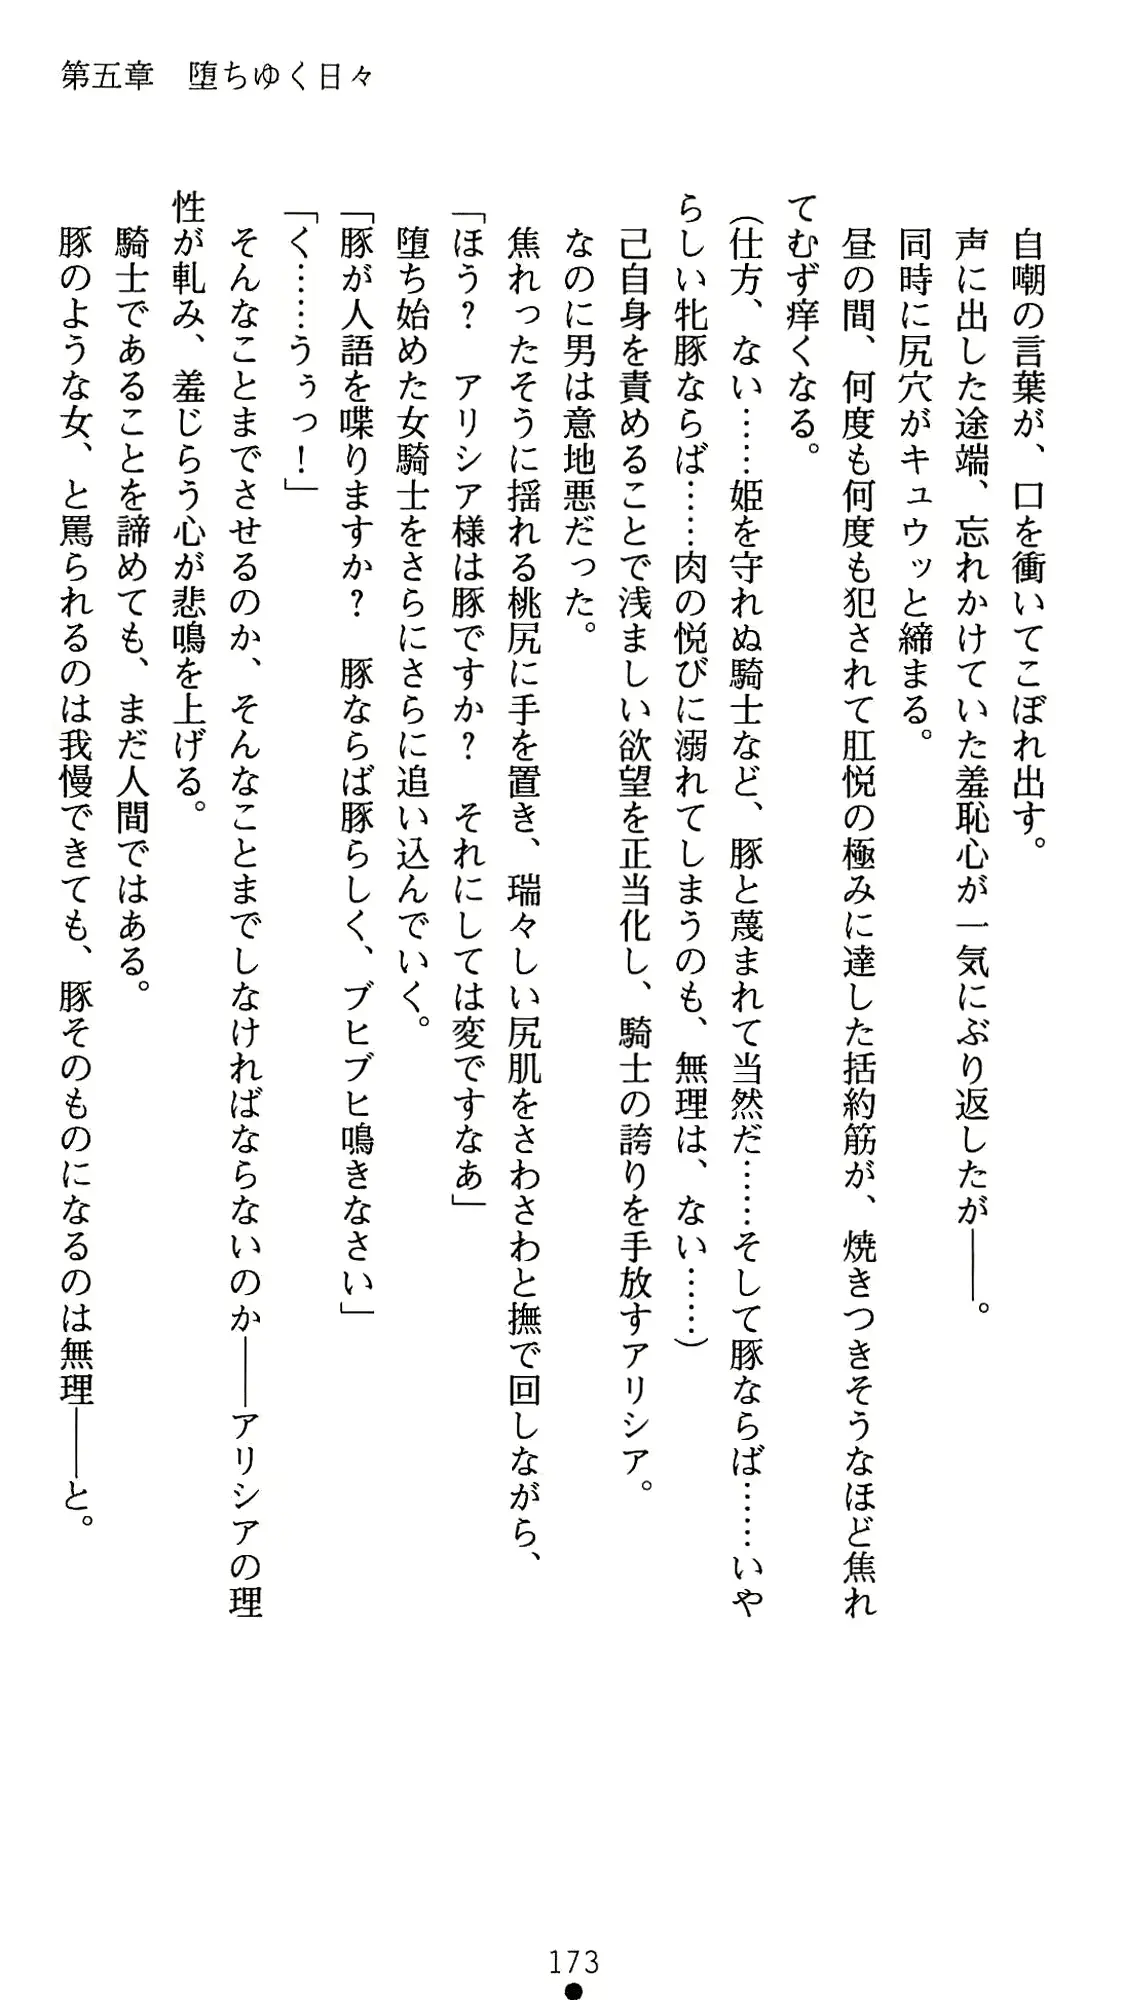 第五章　堕ちゆく日々
自嘲の言葉が、口を衝いてこぼれ出す。
声に出した途端、忘れかけていた羞恥心が一気にぶり返したが――。
同時に尻穴がキュウッと締まる。
昼の間、何度も何度も犯されて肛悦の極みに達した括約筋が、焼きつきそうなほど焦れ
てむず痒くなる。
（仕方、ない……姫を守れぬ騎士など、豚と蔑まれて当然だ……そして豚ならば……いや
らしい牝豚ならば……肉の悦びに溺れてしまうのも、無理は、ない……）
己自身を責めることで浅ましい欲望を正当化し、騎士の誇りを手放すアリシア。
なのに男は意地悪だった。
焦れったそうに揺れる桃尻に手を置き、瑞々しい尻肌をさわさわと撫で回しながら、
「ほう？　アリシア様は豚ですか？　それにしては変ですなあ」
堕ち始めた女騎士をさらにさらに追い込んでいく。
「豚が人語を喋りますか？　豚ならば豚らしく、ブヒブヒ鳴きなさい」
「く……うぅっ！」
そんなことまでさせるのか、そんなことまでしなければならないのか――アリシアの理
性が軋み、羞じらう心が悲鳴を上げる。
騎士であることを諦めても、まだ人間ではある。
豚のような女、と罵られるのは我慢できても、豚そのものになるのは無理――と。
173